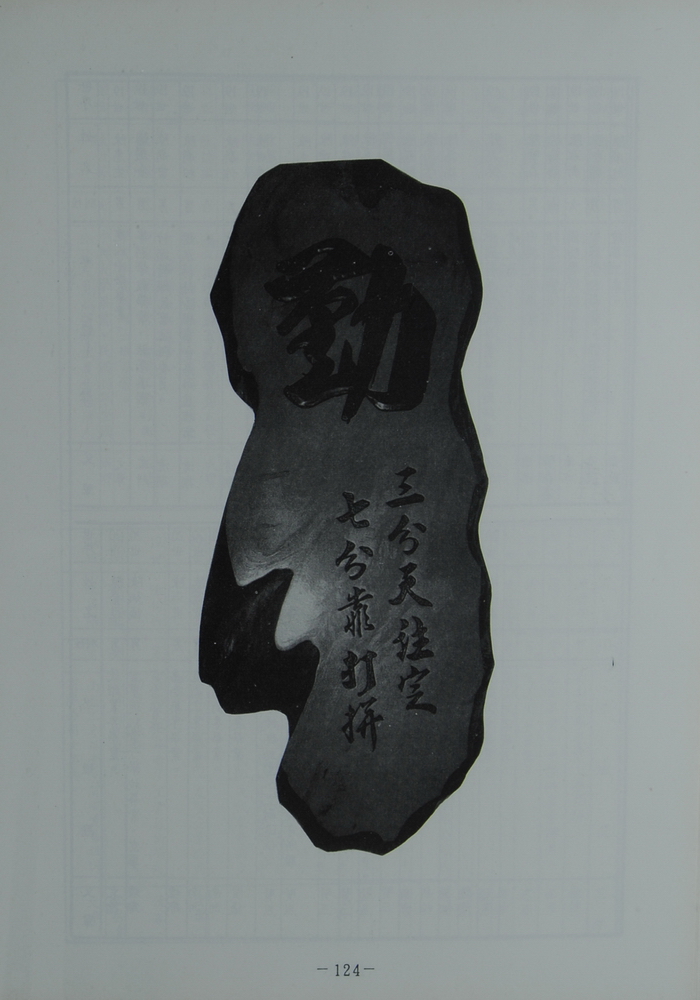 勤
三分天註定
七分靠打拼
－124－